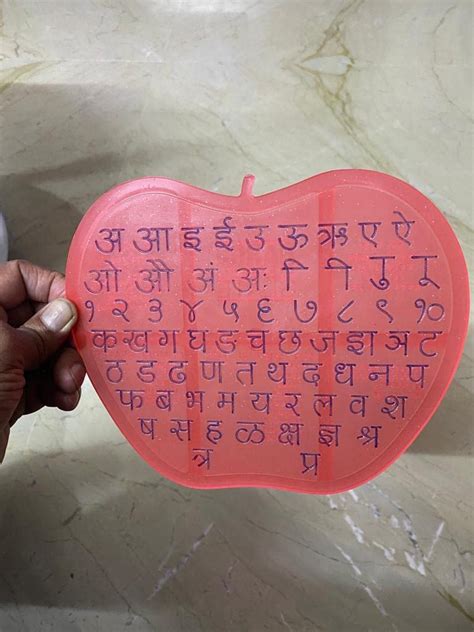 अ आ इ ई उ ऊ ऋ ए ऐ
ओ औ अं अः ि ी ु ू
१ २ ३ ४ ५ ६ ७ ८ ९ १०
क ख ग घ ङ च छ ज झ ञ ट
ठ ड ढ ण त थ द ध न प
फ ब भ म य र ल व श
ष स ह ळ क्ष ज्ञ श्र
त्र प्र